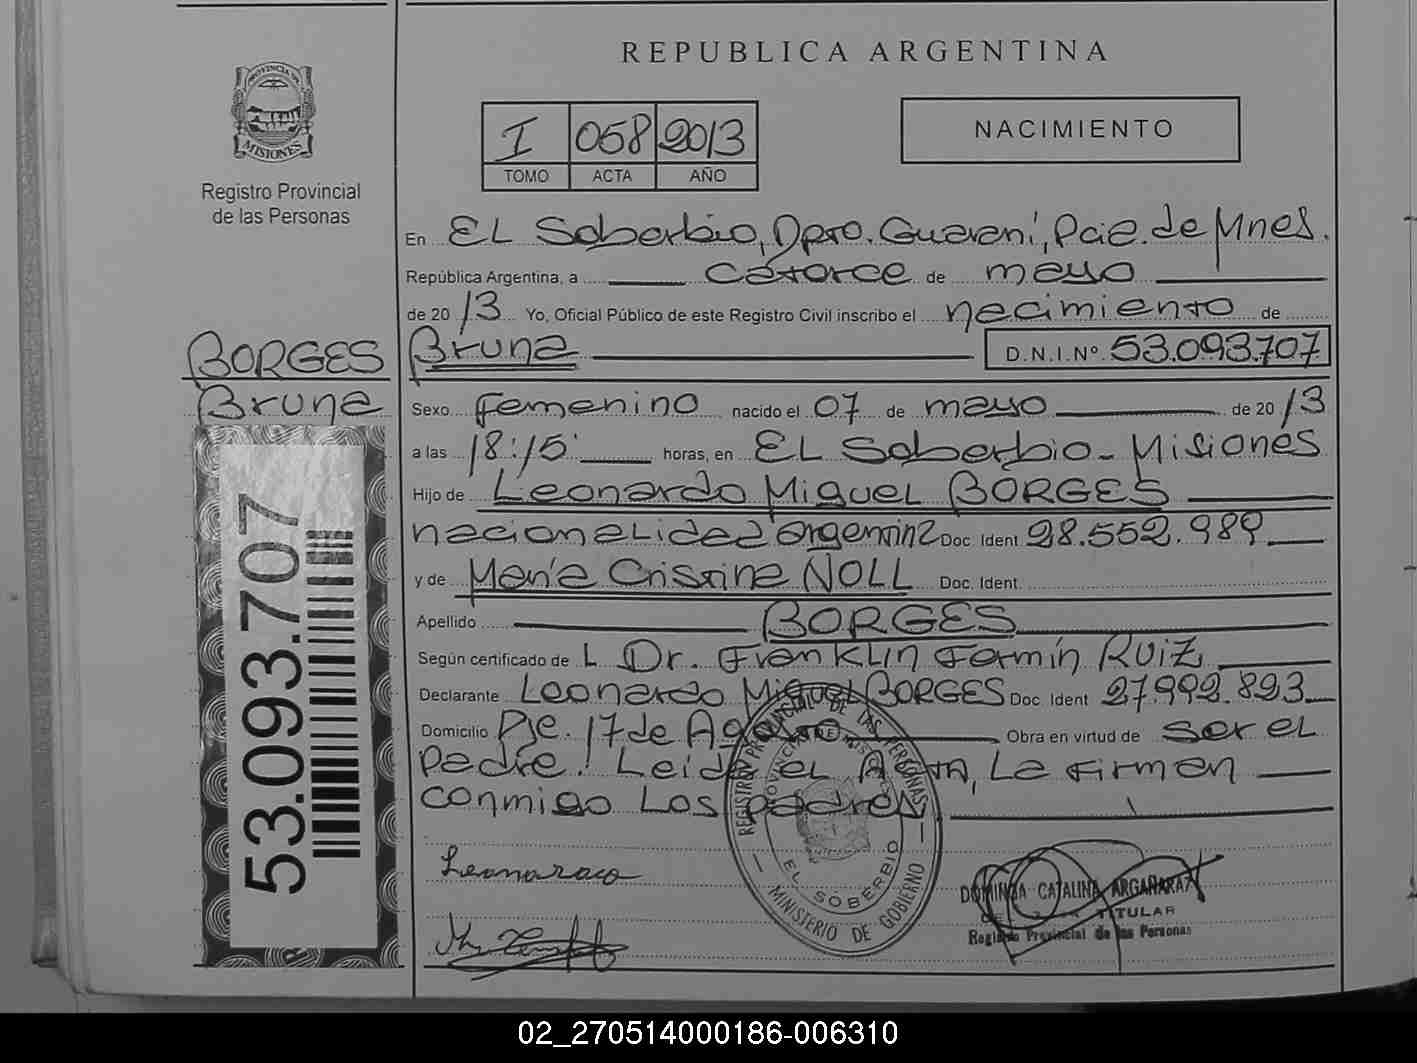 REPUBLICA ARGENTINA
PROVINCIA DE
MISIONES
Registro Provincial
de las Personas
I 058 2013
TOMO ACTA AÑO
NACIMIENTO
En EL Soberbio, Dpto. Guaraní, Pcia. de Mnes.
República Argentina, a catorce de mayo
de 2013 Yo, Oficial Público de este Registro Civil inscribo el nacimiento de
Bruna D.N.I.Nº 53.093.707
BORGES
Bruna
53.093.707
Sexo femenino nacido el 07 de mayo de 2013
a las 18:15 horas, en EL Soberbio - Misiones
Hijo de Leonardo Miguel BORGES
nacionalidad argentina Doc. Ident. 28.552.989
y de María Cristina NOLL Doc. Ident.
Apellido BORGES
Según certificado de L Dr. Franklin Fermín Ruiz
Declarante Leonardo Miguel BORGES Doc Ident 27.992.893
Domicilio Pje. 17 de Agosto Obra en virtud de ser el
padre! Leida el Acta, La firman
conmigo Los padres
REGISTRO PROVINCIAL DE LAS PERSONAS
PROVINCIA DE MISIONES
EL SOBERBIO
MINISTERIO DE GOBIERNO
Leonardo
DOMINGA CATALINA ARGAÑARAZ
TITULAR
Registro Provincial de las Personas
02_270514000186-006310